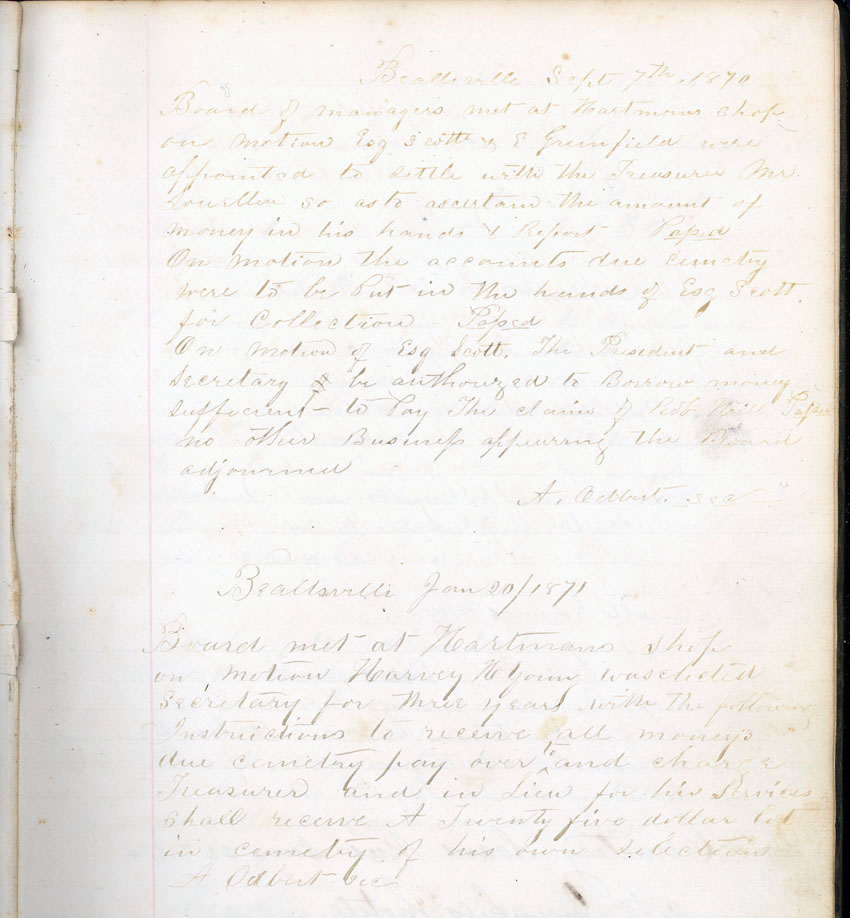 Beallsville Sept 7th, 1870
Board of managers met at Hartmans shop
on motion Esq Scott & E Greenfield were
appointed to settle with the Treasurer Mr.
so as to ascertain the amount of
money in his hands & Report Paſsed
On motion the accounts due cemetry
were to be Put in the hands of Esq Scott.
for Collection Paſsed
On motion of Esq Scott. The President and
Secretary be authorized to Borrow money
sufficient to Pay The claim of Robt Hill
no other Buisneſs appearing the Board
adjourned
A. Odbert. sec
Beallsville Jan 20/1871
Board met at Hartmans shop
on motion Harvey was elected
Secretary for three years with the following
Instructions to receive all moneys
due cemetry pay over to and charge
Treasurer and in Lieu for his Services
shall receive A Twenty five dollar lot
in cemetry of his own selection
A Odbert sec